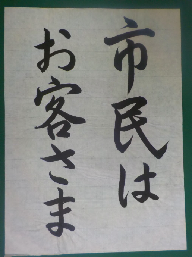 市民は
お客さま